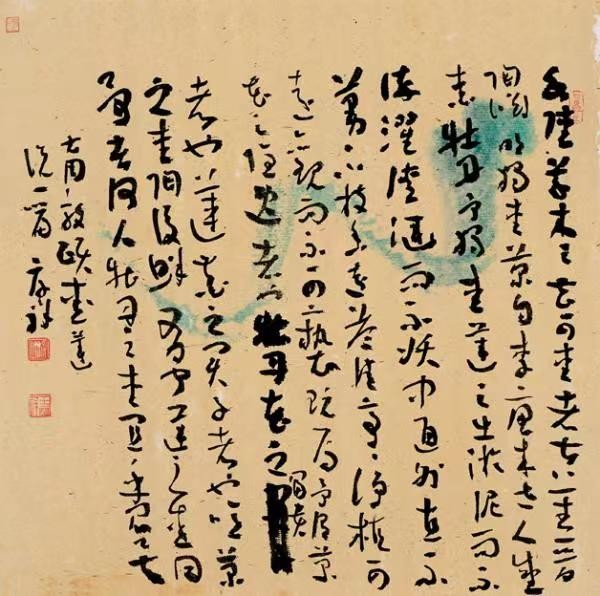 水陸草木之花可愛者甚蕃晉
陶淵明獨愛菊自李唐來世人盛
愛牡丹予獨愛蓮之出淤泥而不
染濯清漣而不妖中通外直不
蔓不枝香遠益清亭亭淨植可
遠觀而不可褻玩焉予謂菊
花之隱逸者也牡丹花之富貴
者也蓮花之君子者也噫菊
之愛陶後鮮有聞蓮之愛同
予者何人牡丹之愛宜乎眾矣
周敦頤愛蓮
說一篇